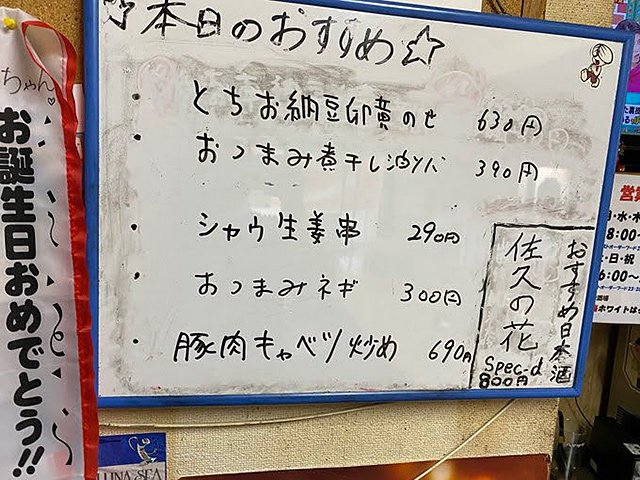 ☆本日のおすすめ☆
とちお納豆卵黄のせ 630円
おつまみ煮干し油ソバ 390円
シャウ生姜串 290円
おつまみネギ 300円
豚肉キャベツ炒め 690円
おすすめ日本酒
佐久の花
Spec-d
800円
ちゃん
お誕生日おめでとう!!
LUNA SEA
営業
月・水・木
8:00~
・日・祝
6:00~
ホワイトは